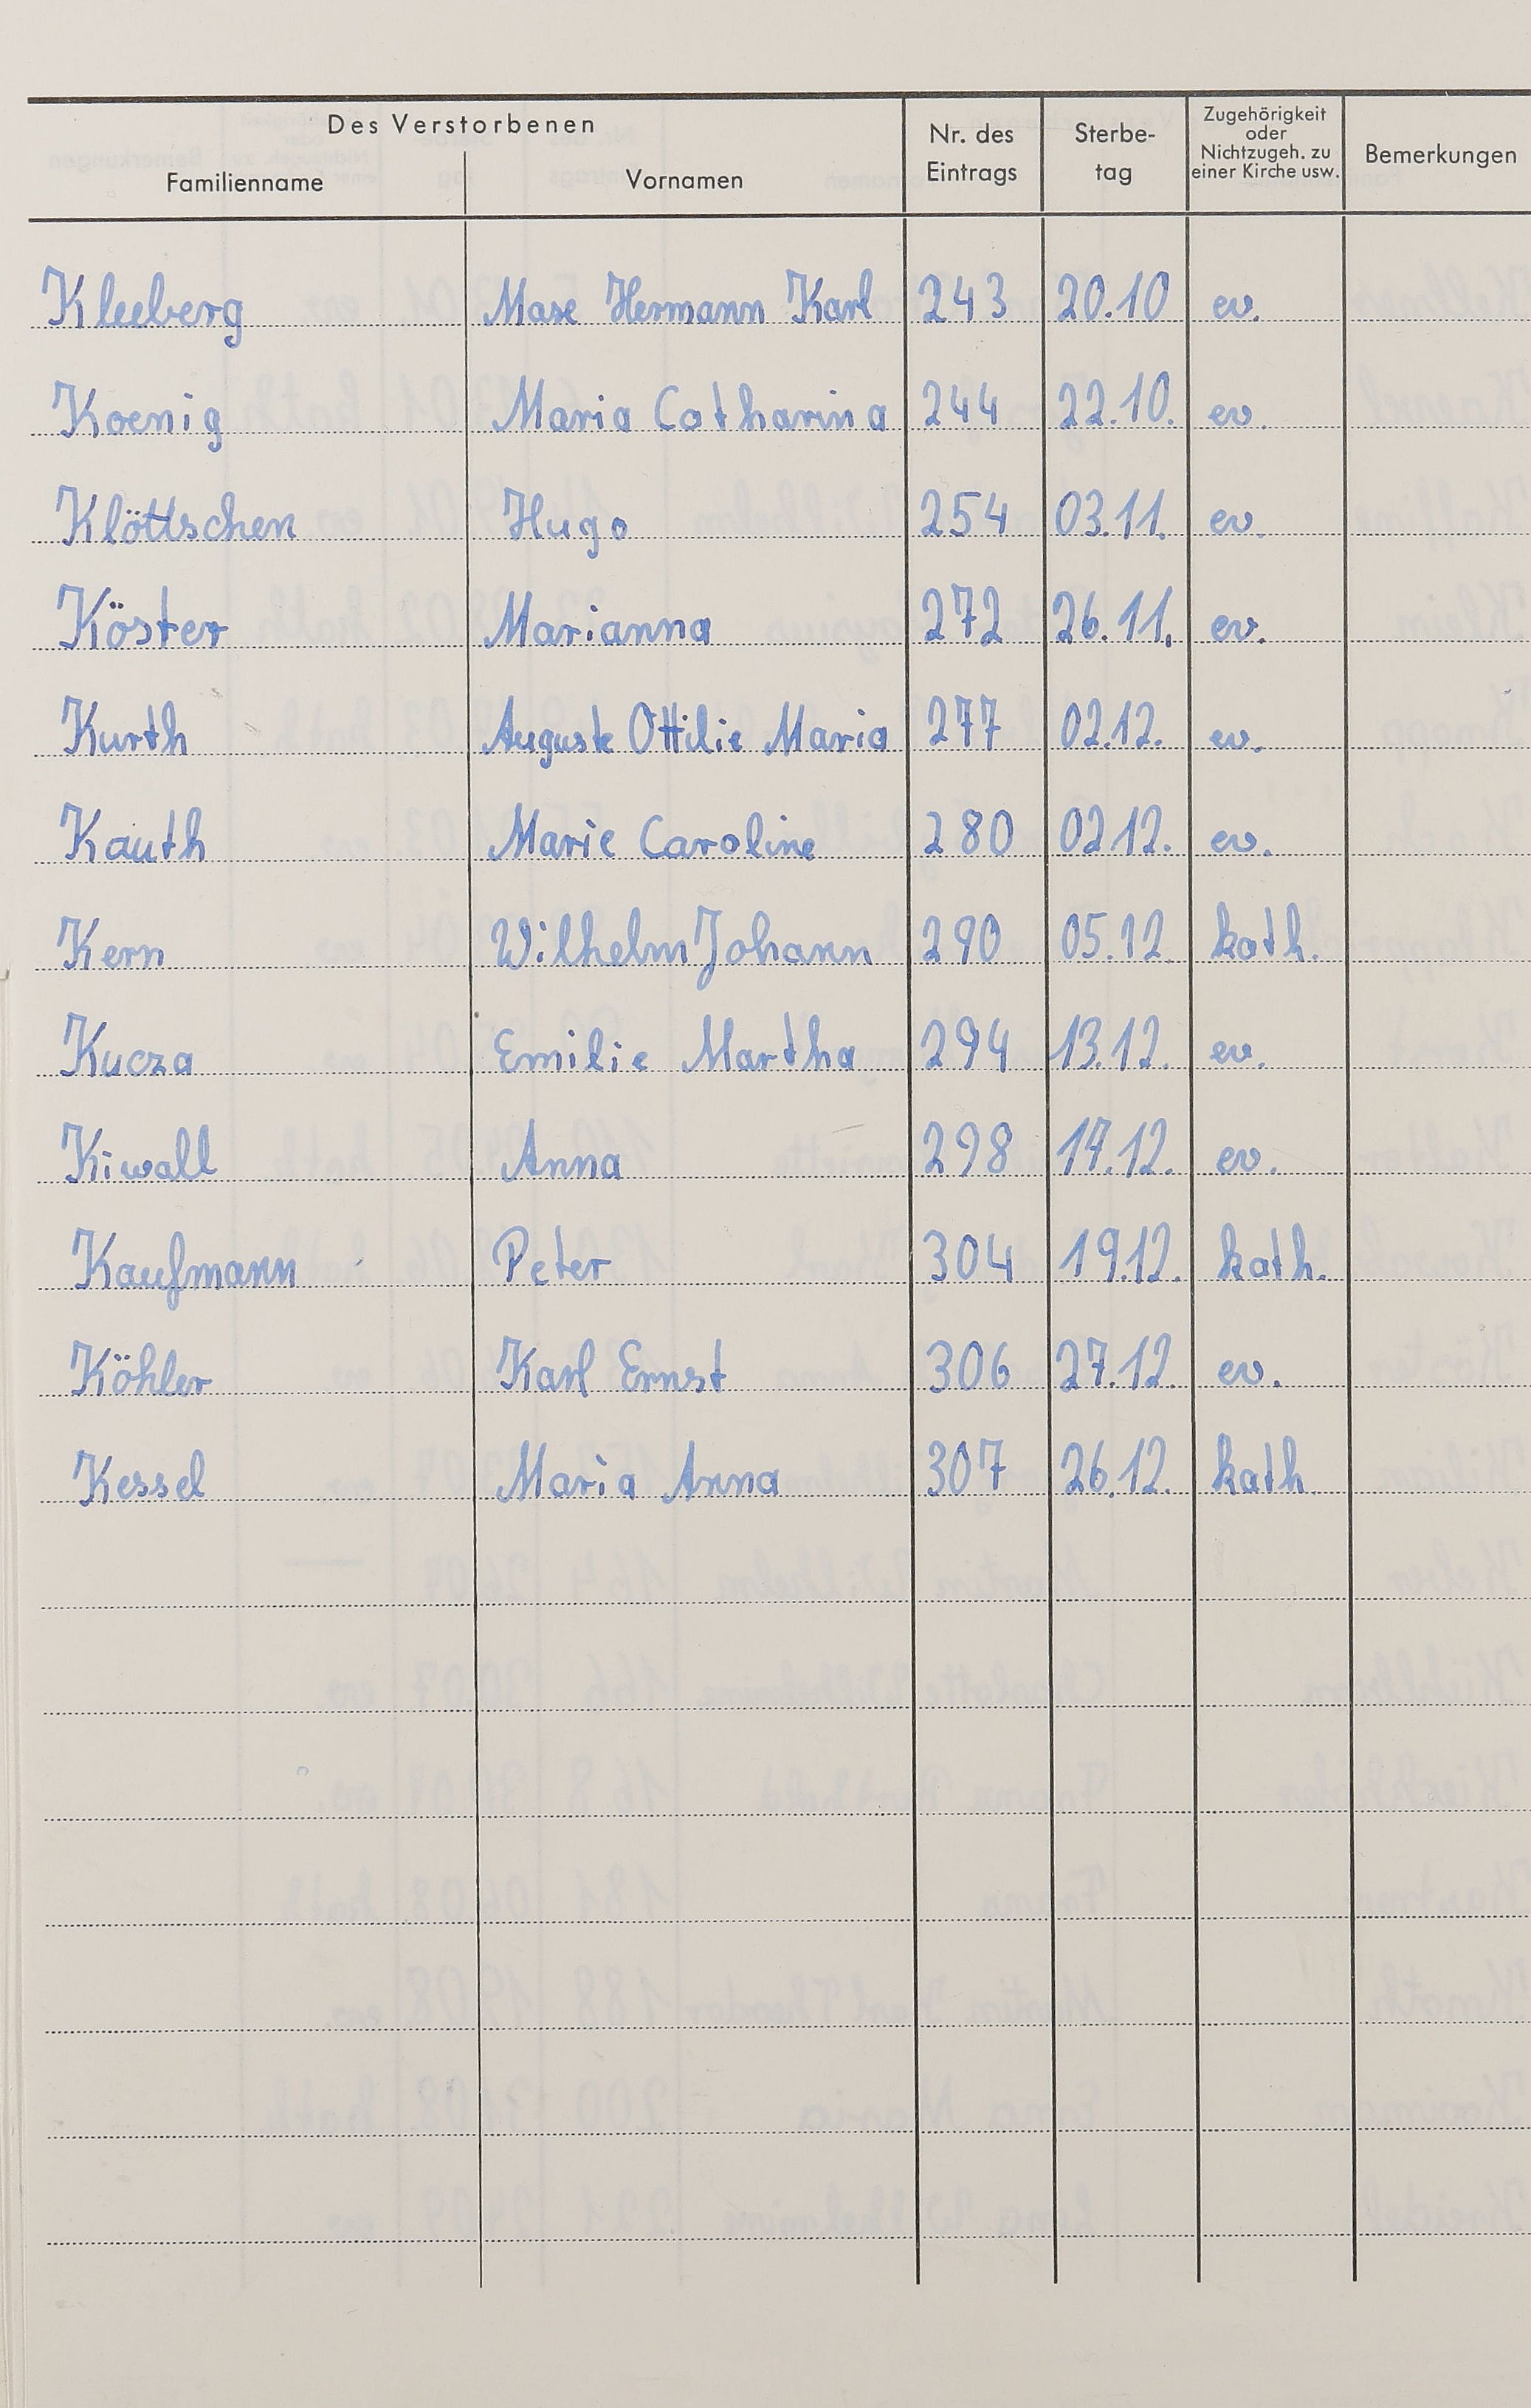 Des Verstorbenen
Familienname Vornamen Nr. des Eintrags Sterbe-tag Zugehörigkeit oder Nichtzugeh. zu einer Kirche usw. Bemerkungen
Kleeberg Maxe Hermann Karl 243 20.10 ev.
Koenig Maria Catharina 244 22.10. ev.
Klöttschen Hugo 254 03.11. ev.
Köster Marianna 272 26.11. ev.
Kurth Auguste Ottilie Maria 277 02.12. ev.
Kauth Marie Caroline 280 02.12. ev.
Kern Wilhelm Johann 290 05.12. kath.
Kucza Emilie Martha 294 13.12. ev.
Kiwall Anna 298 17.12. ev.
Kaufmann Peter 304 19.12. kath.
Köhler Karl Ernst 306 27.12. ev.
Kessel Maria Anna 307 26.12. kath